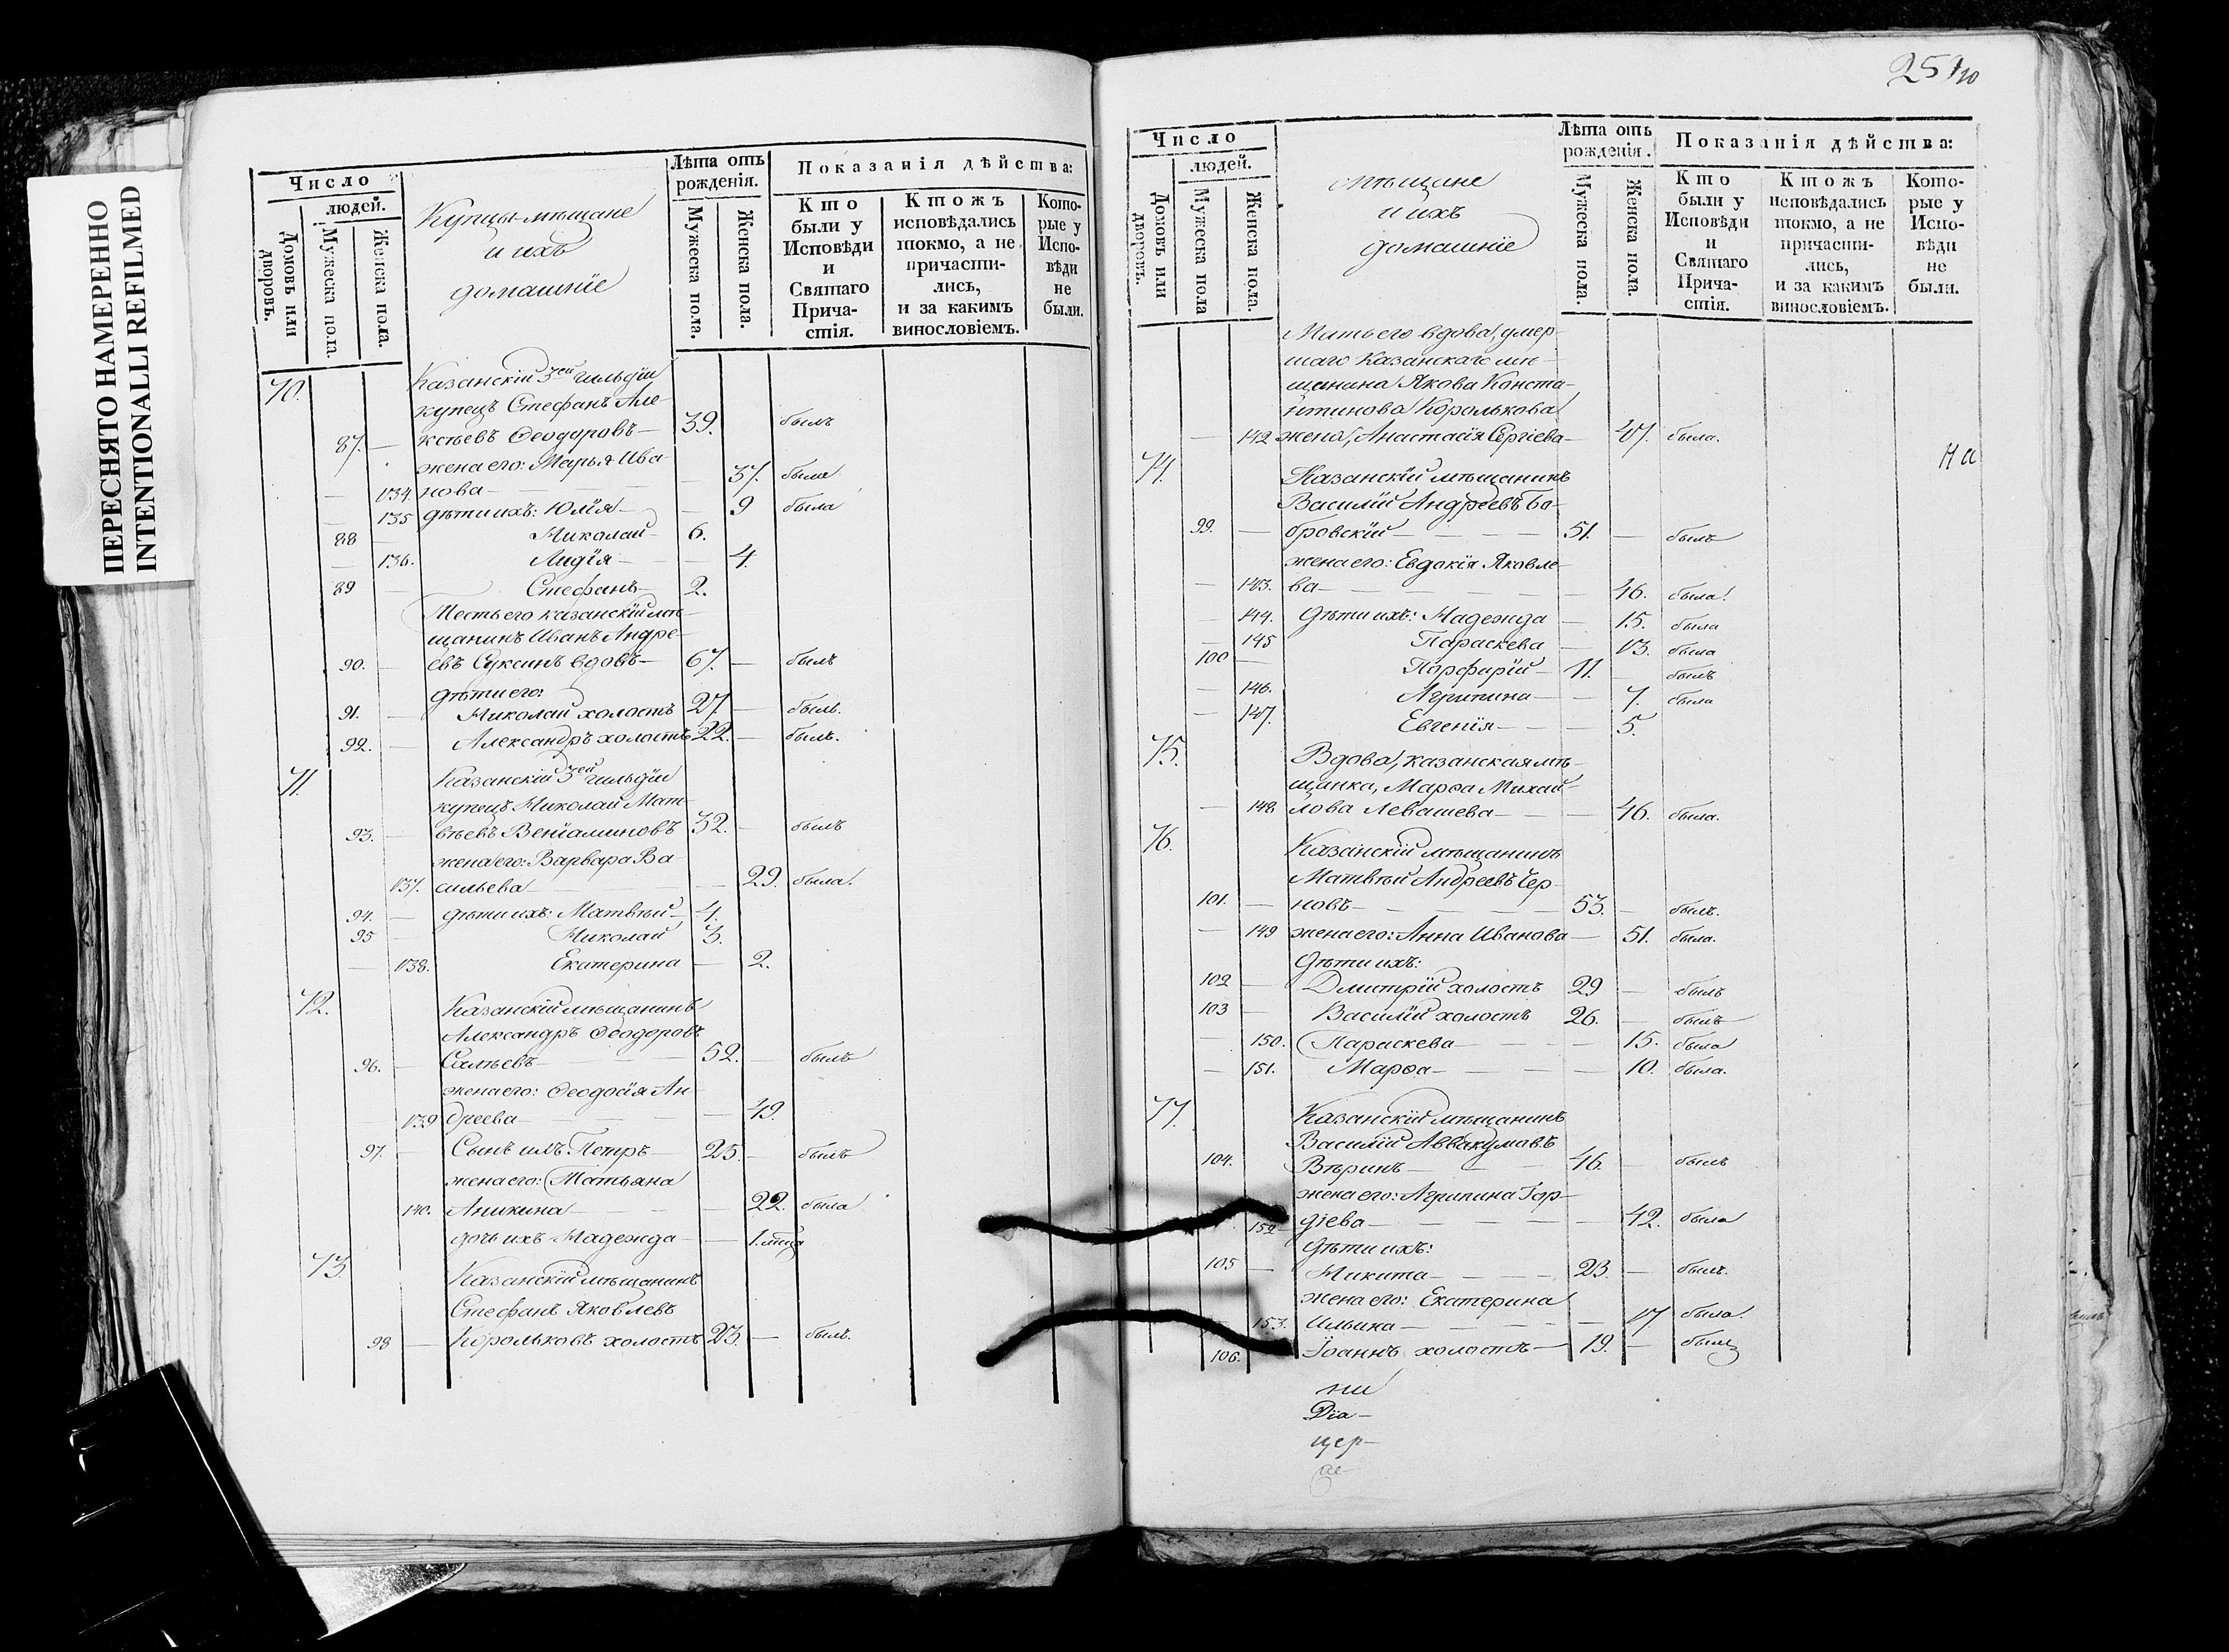 ПЕРЕСНЯТО НАМЕРЕННО
INTENTIONALLI REFILMED
Число
людей.
Домовъ или дворовъ.
Мужеска пола.
Женска пола.
Купцы мѣщане
и ихъ
домашніе
Лѣта отъ
рожденія.
Мужеска пола.
Женска пола.
Показанія дѣйства:
Кто
были у
Исповѣди
и
Святаго
Прича-
стія.
Ктожъ
исповѣдались
токмо, а не
причасти-
лись,
и за какимъ
винословіемъ.
Кото-
рые у
Испо-
вѣди
не
были.
70. Казанскій 3ей гильдіи
купецъ Стефанъ Але-
87. — ксѣевъ Ѳеодоровъ — 39. былъ
жена его: Марья Ива-
— 134. нова — — 37. была
— 135 дѣти ихъ: Юлія — — 9 была
88 — Николай — 6.
— 136. Лидія — — 4.
89 — Стефанъ — 2.
Тесть его казанскій мѣ-
щанинъ Иванъ Андре-
90. — евъ Суксинъ вдовъ — 67. — былъ
дѣти его:
91. — Николай холостъ 27. — былъ.
92. — Александръ холостъ 22. — былъ.
71. Казанскій 3ей гильдіи
купецъ Николай Мат-
93. — вѣевъ Веніаминовъ 32. — былъ
жена его: Варвара Ва
137. сильева — — 29. была.
94. — дѣти ихъ: Матвѣй — 4.
95 — Николай 3.
— 138. Екатерина — 2.
72. Казанскій мѣщанинъ
Александръ Ѳеодоровъ
96. — — 52. — былъ
жена его: Ѳеодосія Ан-
— 139 дреева — — 49.
97. — Сынъ имъ Петръ 25. — былъ
жена его: Татьяна
140. Аникина — — 22. была
дочь ихъ Надежда — — 1. мѣца
73. Казанскій мѣщанинъ
Стефанъ Яковлевъ
98 — Корольковъ холостъ 23. — былъ.
251
Число
людей.
Домовъ или дворовъ.
Мужеска пола
Женска пола.
мѣщане
и ихъ
домашніе
Лѣта отъ
рожденія.
Мужеска пола.
Женска пола.
Показанія дѣйства:
Кто
были у
Исповѣди
и
Святаго
Прича-
стія.
Ктожъ
исповѣдались
токмо, а не
причасти-
лись,
и за какимъ
винословіемъ.
Кото-
рые у
Испо-
вѣди
не
были.
Мать его вдова, умер-
шаго Казанскаго мѣ-
щанина Якова Конста-
нтинова Королькова
— 142 жена, Анастасія Сергіева — 47. была.
74. Казанскій мѣщанинъ
Василій Андреевъ Бо-
99. — бровскій — 51. — былъ
жена его: Евдокія Яковле-
— 143. ва — — 46. была.
— 144. дѣти ихъ: Надежда — 15. была
— 145 Параскева — 13. была
100 — Порфирій — 11. — былъ
— 146. Агрипина — — 7. была
— 147. Евгенія — — 5.
75. Вдова, казанская мѣ-
щанка, Марѳа Михай-
— 148 лова Левашева — — 46. была.
76. Казанскій мѣщанинъ
Матвѣй Андреевъ Чер-
101. — новъ — 53. — былъ.
— 149 жена его: Анна Иванова — 51. была.
Дѣти ихъ:
102 — Дмитрій холостъ 29 — былъ
103 — Василій холостъ 26. — былъ
— 150. Параскева — — 15. была
— 151. Марѳа — — 10. была.
77. Казанскій мѣщанинъ
Василій Аввакумовъ
104. Вѣринъ — 46. — былъ
жена его: Агрипина Гор-
152 діева — — 42. была
Дѣти ихъ:
105 — Никита — 23. — былъ.
жена его: Екатерина
153. Ильина — — 17 была.
106. Іоаннъ холостъ — 19. — былъ
ни
Діа-
цер-